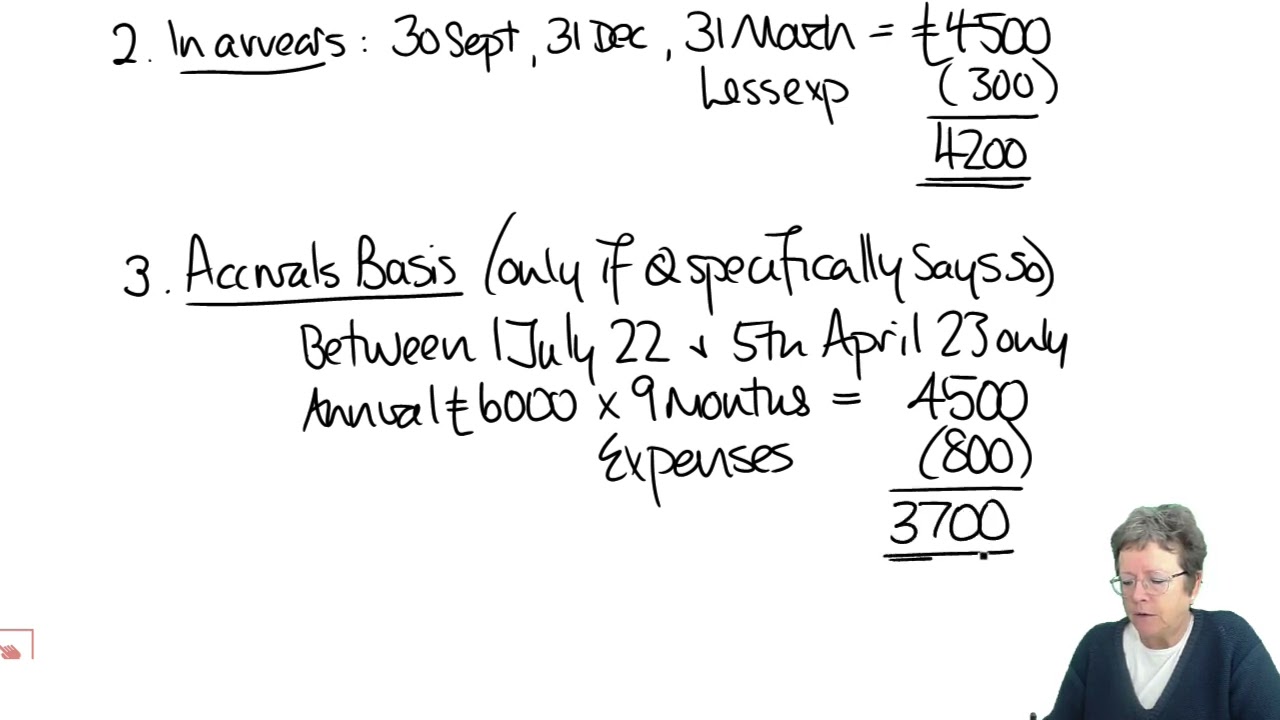 2. In arrears: 30 Sept, 31 Dec, 31 March = £4500
Less exp (300)
4200
3. Accruals Basis (only if Q specifically says so)
Between 1 July 22 & 5th April 23 only
Annual £6000 x 9 Months = 4500
Expenses (800)
3700